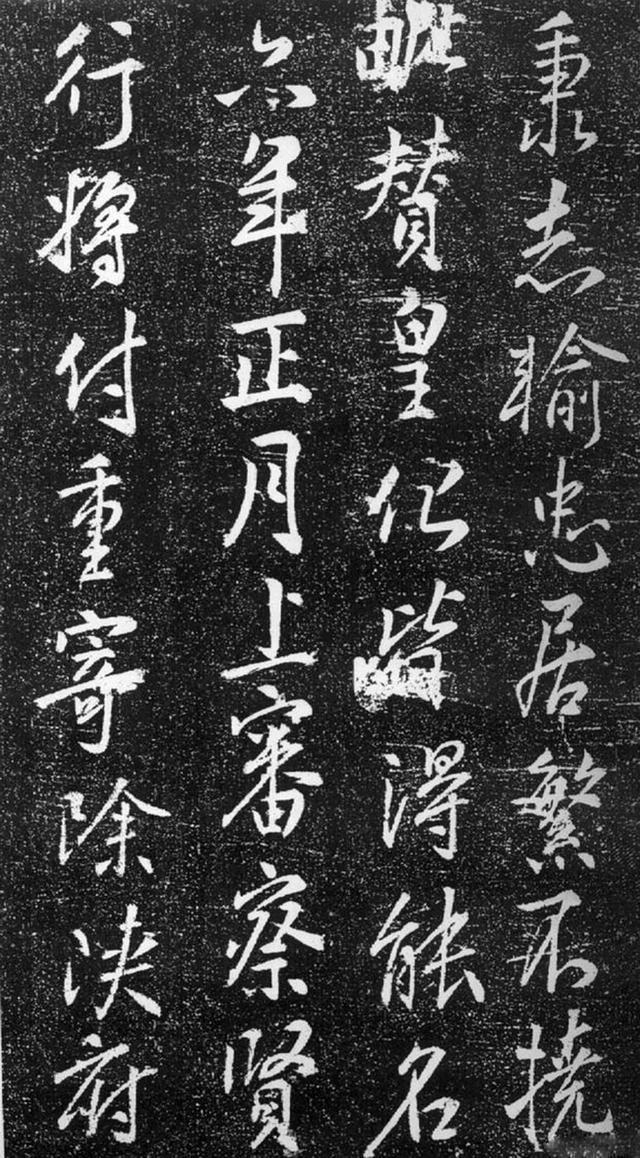 秉志輸忠居繁不撓
毗贊皇皆得能名
六年正月上審察賢
行將付重寄除陝府